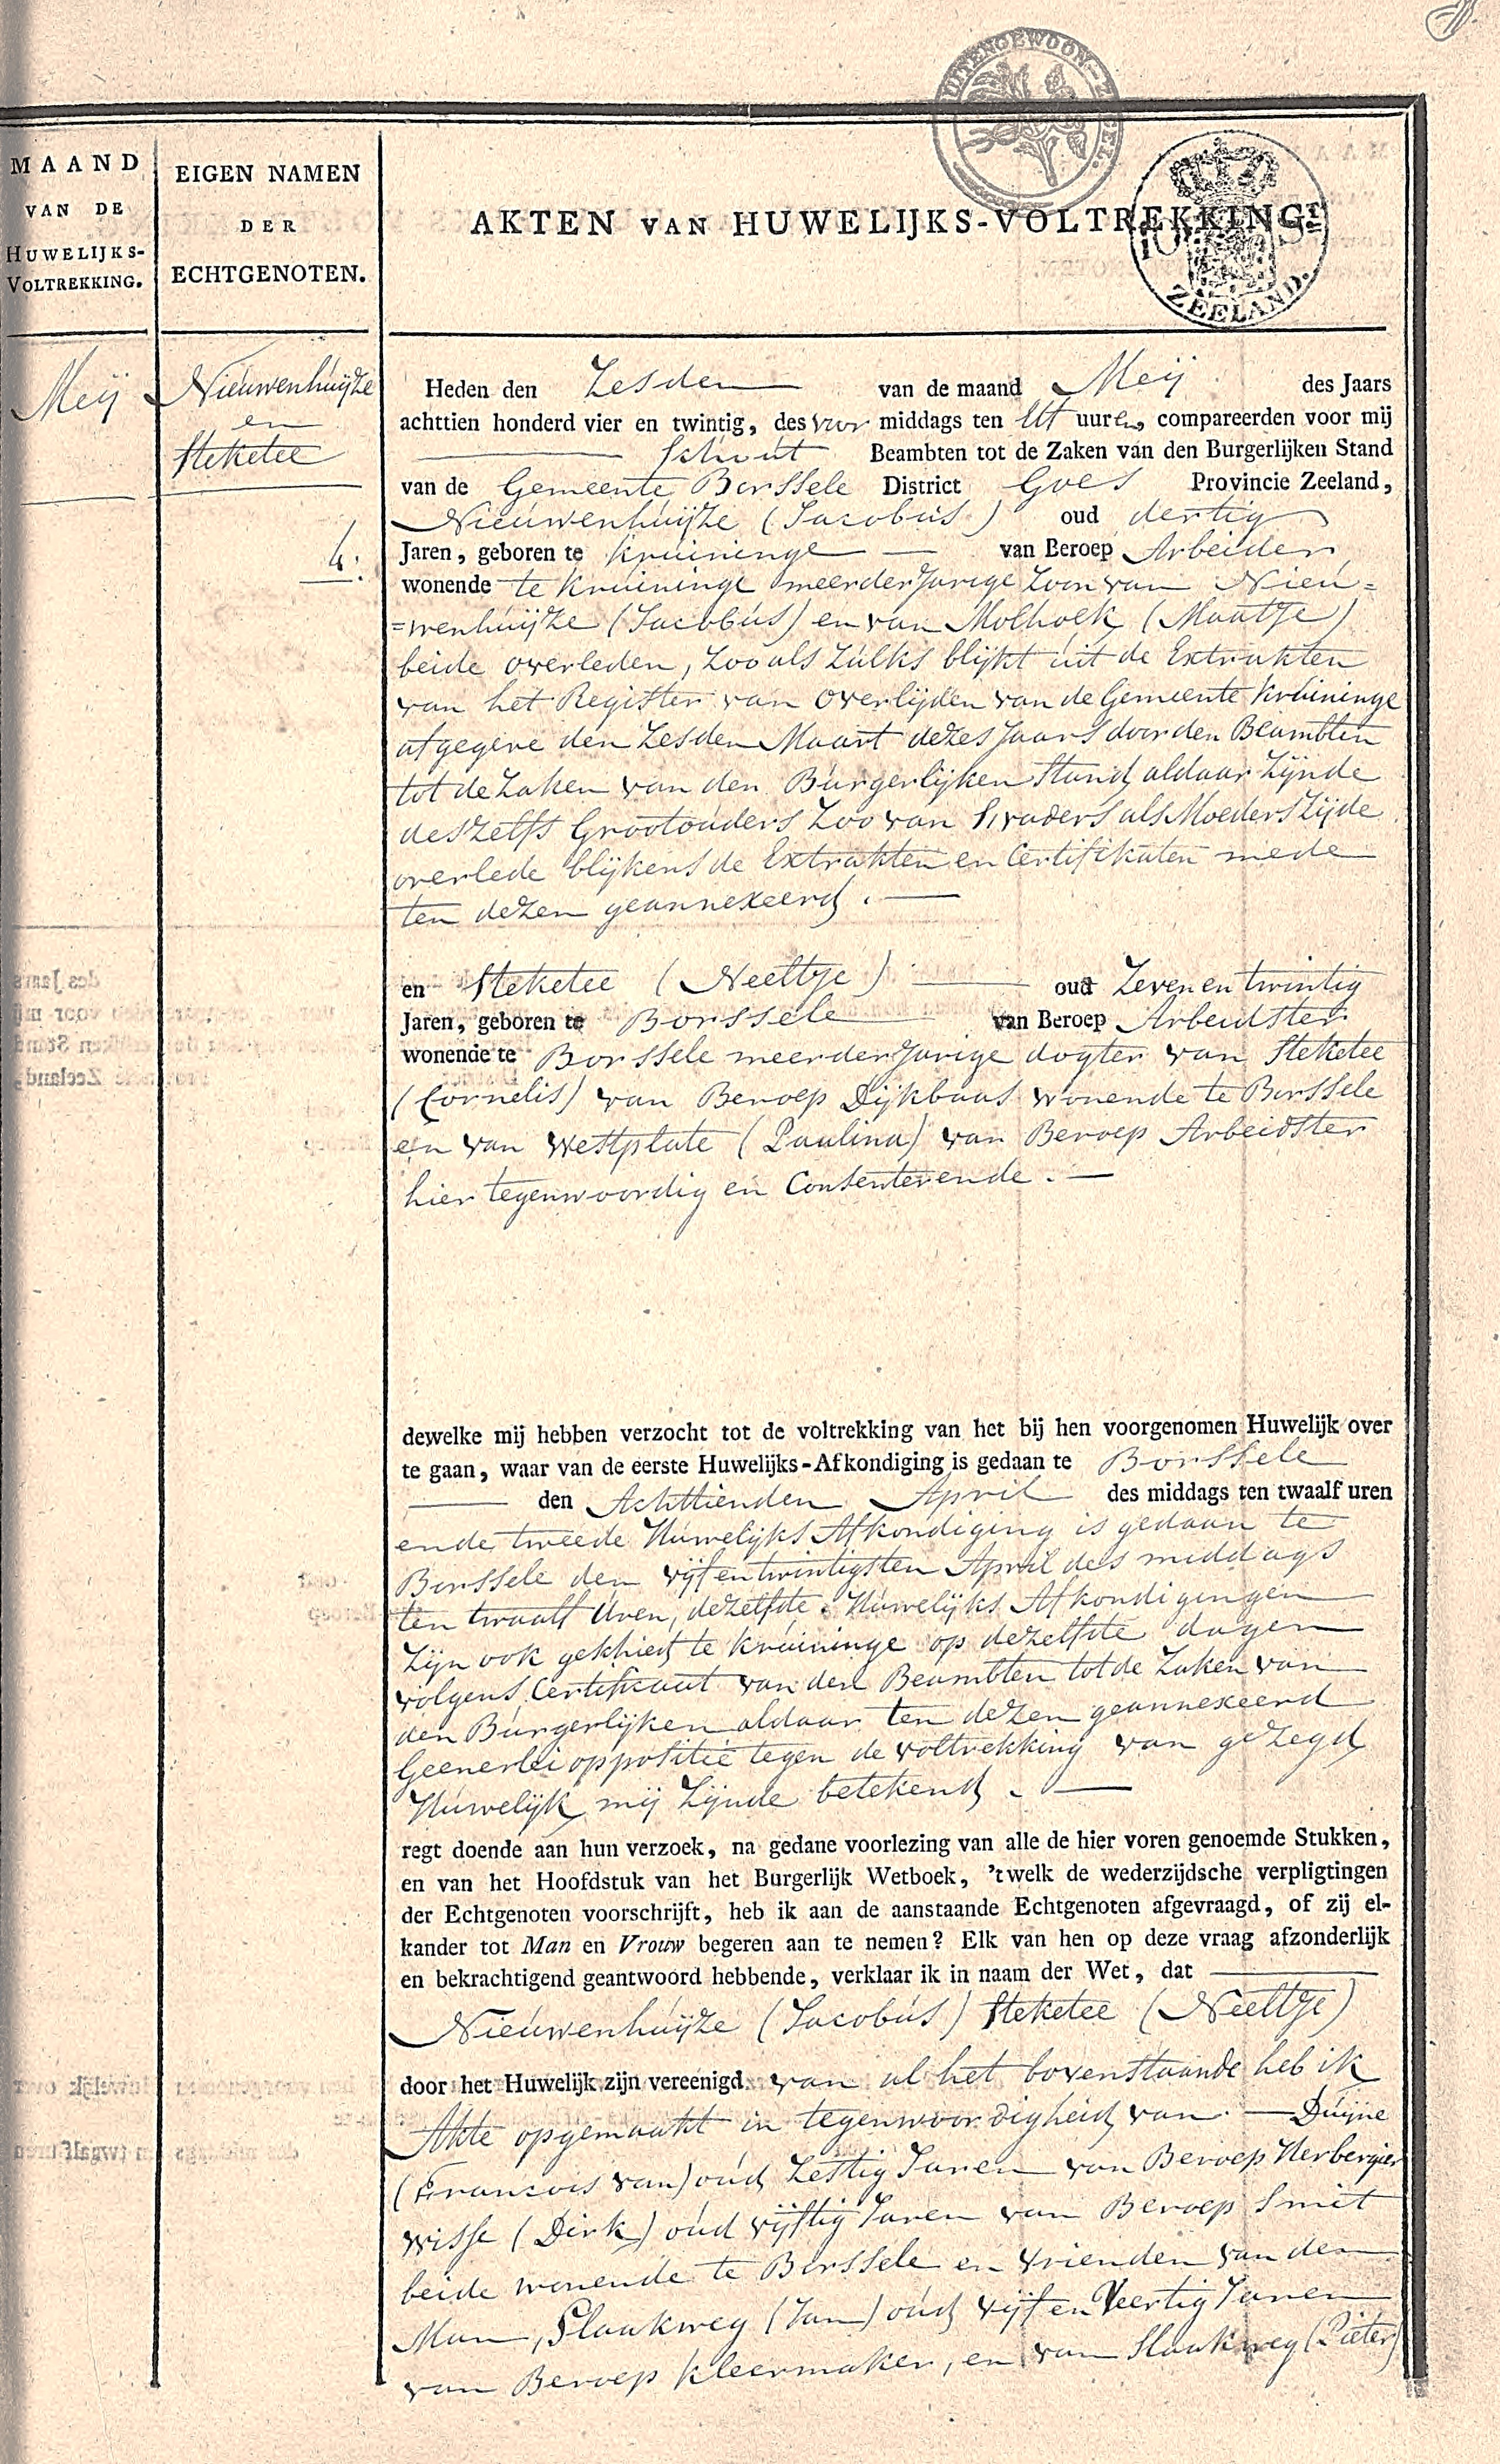 UITENGEWOON-ZEGEL.
ZEELAND.
MAAND
VAN DE
HUWELIJKS-
VOLTREKKING.
EIGEN NAMEN
DER
ECHTGENOTEN.
AKTEN VAN HUWELIJKS-VOLTREKKING
Meij
Nieuwenhuijze
en
Steketee
4.
Heden den Zesden van de maand Meij des Jaars
achttien honderd vier en twintig, des voor middags ten Elf uuren, compareerden voor mij
Schout Beambten tot de Zaken van den Burgerlijken Stand
van de Gemeente Borssele District Goes Provincie Zeeland,
Nieuwenhuijze (Jacobus) oud dertig
Jaren, geboren te Kruininge van Beroep Arbeider
wonende te Kruininge meerderjarige Zoon van Nieu=
=wenhuijze (Jacobus) en van Molhoek (Maatje)
beide overleden, Zoo als Zulks blijkt uit de Extrakten
van het Register van Overlijden van de Gemeente Kruininge
afgegeve den Zesden Maart dezes Jaars door den Beambten
tot de Zaken van den Burgerlijken Stand aldaar Zijnde
deszelfs Grootouders Zoo van Svaders als Moeders Zijde
overlede blijkens de Extrakten en Certifikaten mede
ten dezen geannexeerd.
en Steketee (Neeltje) oud Zeven en twintig
Jaren, geboren te Borssele van Beroep Arbeidster
wonende te Borssele meerderjarige dogter van Steketee
(Cornelis) van Beroep Dijkbaas wonende te Borssele
en van Westplate (Paulina) van Beroep Arbeidster
hier tegenwoordig en Consenterende.
dewelke mij hebben verzocht tot de voltrekking van het bij hen voorgenomen Huwelijk over
te gaan, waar van de eerste Huwelijks-Afkondiging is gedaan te Borssele
den Achttienden April des middags ten twaalf uren
en de tweede Huwelijks Afkondiging is gedaan te
Borssele den vijf en twintigsten April des middags
ten twaalf Uren, dezelfde Huwelijks Afkondigingen
Zijn ook geschied te Kruininge op dezelfde dagen
volgens Certificaat van den Beambten tot de Zaken van
den Burgerlijken aldaar ten dezen geannexeerd
Geenerlei oppositie tegen de voltrekking van gezegd
Huwelijk mij Zijnde betekend.
regt doende aan hun verzoek, na gedane voorlezing van alle de hier voren genoemde Stukken,
en van het Hoofdstuk van het Burgerlijk Wetboek, 'twelk de wederzijdsche verpligtingen
der Echtgenoten voorschrijft, heb ik aan de aanstaande Echtgenoten afgevraagd, of zij el-
kander tot Man en Vrouw begeren aan te nemen? Elk van hen op deze vraag afzonderlijk
en bekrachtigend geantwoord hebbende, verklaar ik in naam der Wet, dat
Nieuwenhuijze (Jacobus) Steketee (Neeltje)
door het Huwelijk zijn vereenigd. van al het bovenstaande heb ik
Akte opgemaakt in tegenwoordigheid van Duijne
(Francois van) oud Zestig Jaren van Beroep Herbergier
Wisse (Dirk) oud vijftig Jaren van Beroep Smit
beide wonende te Borssele en Vrienden van den
Man, Slaakweg (Jan) oud vijf en Veertig Jaren
van Beroep Kleermaker, en van Slaakweg (Pieter)